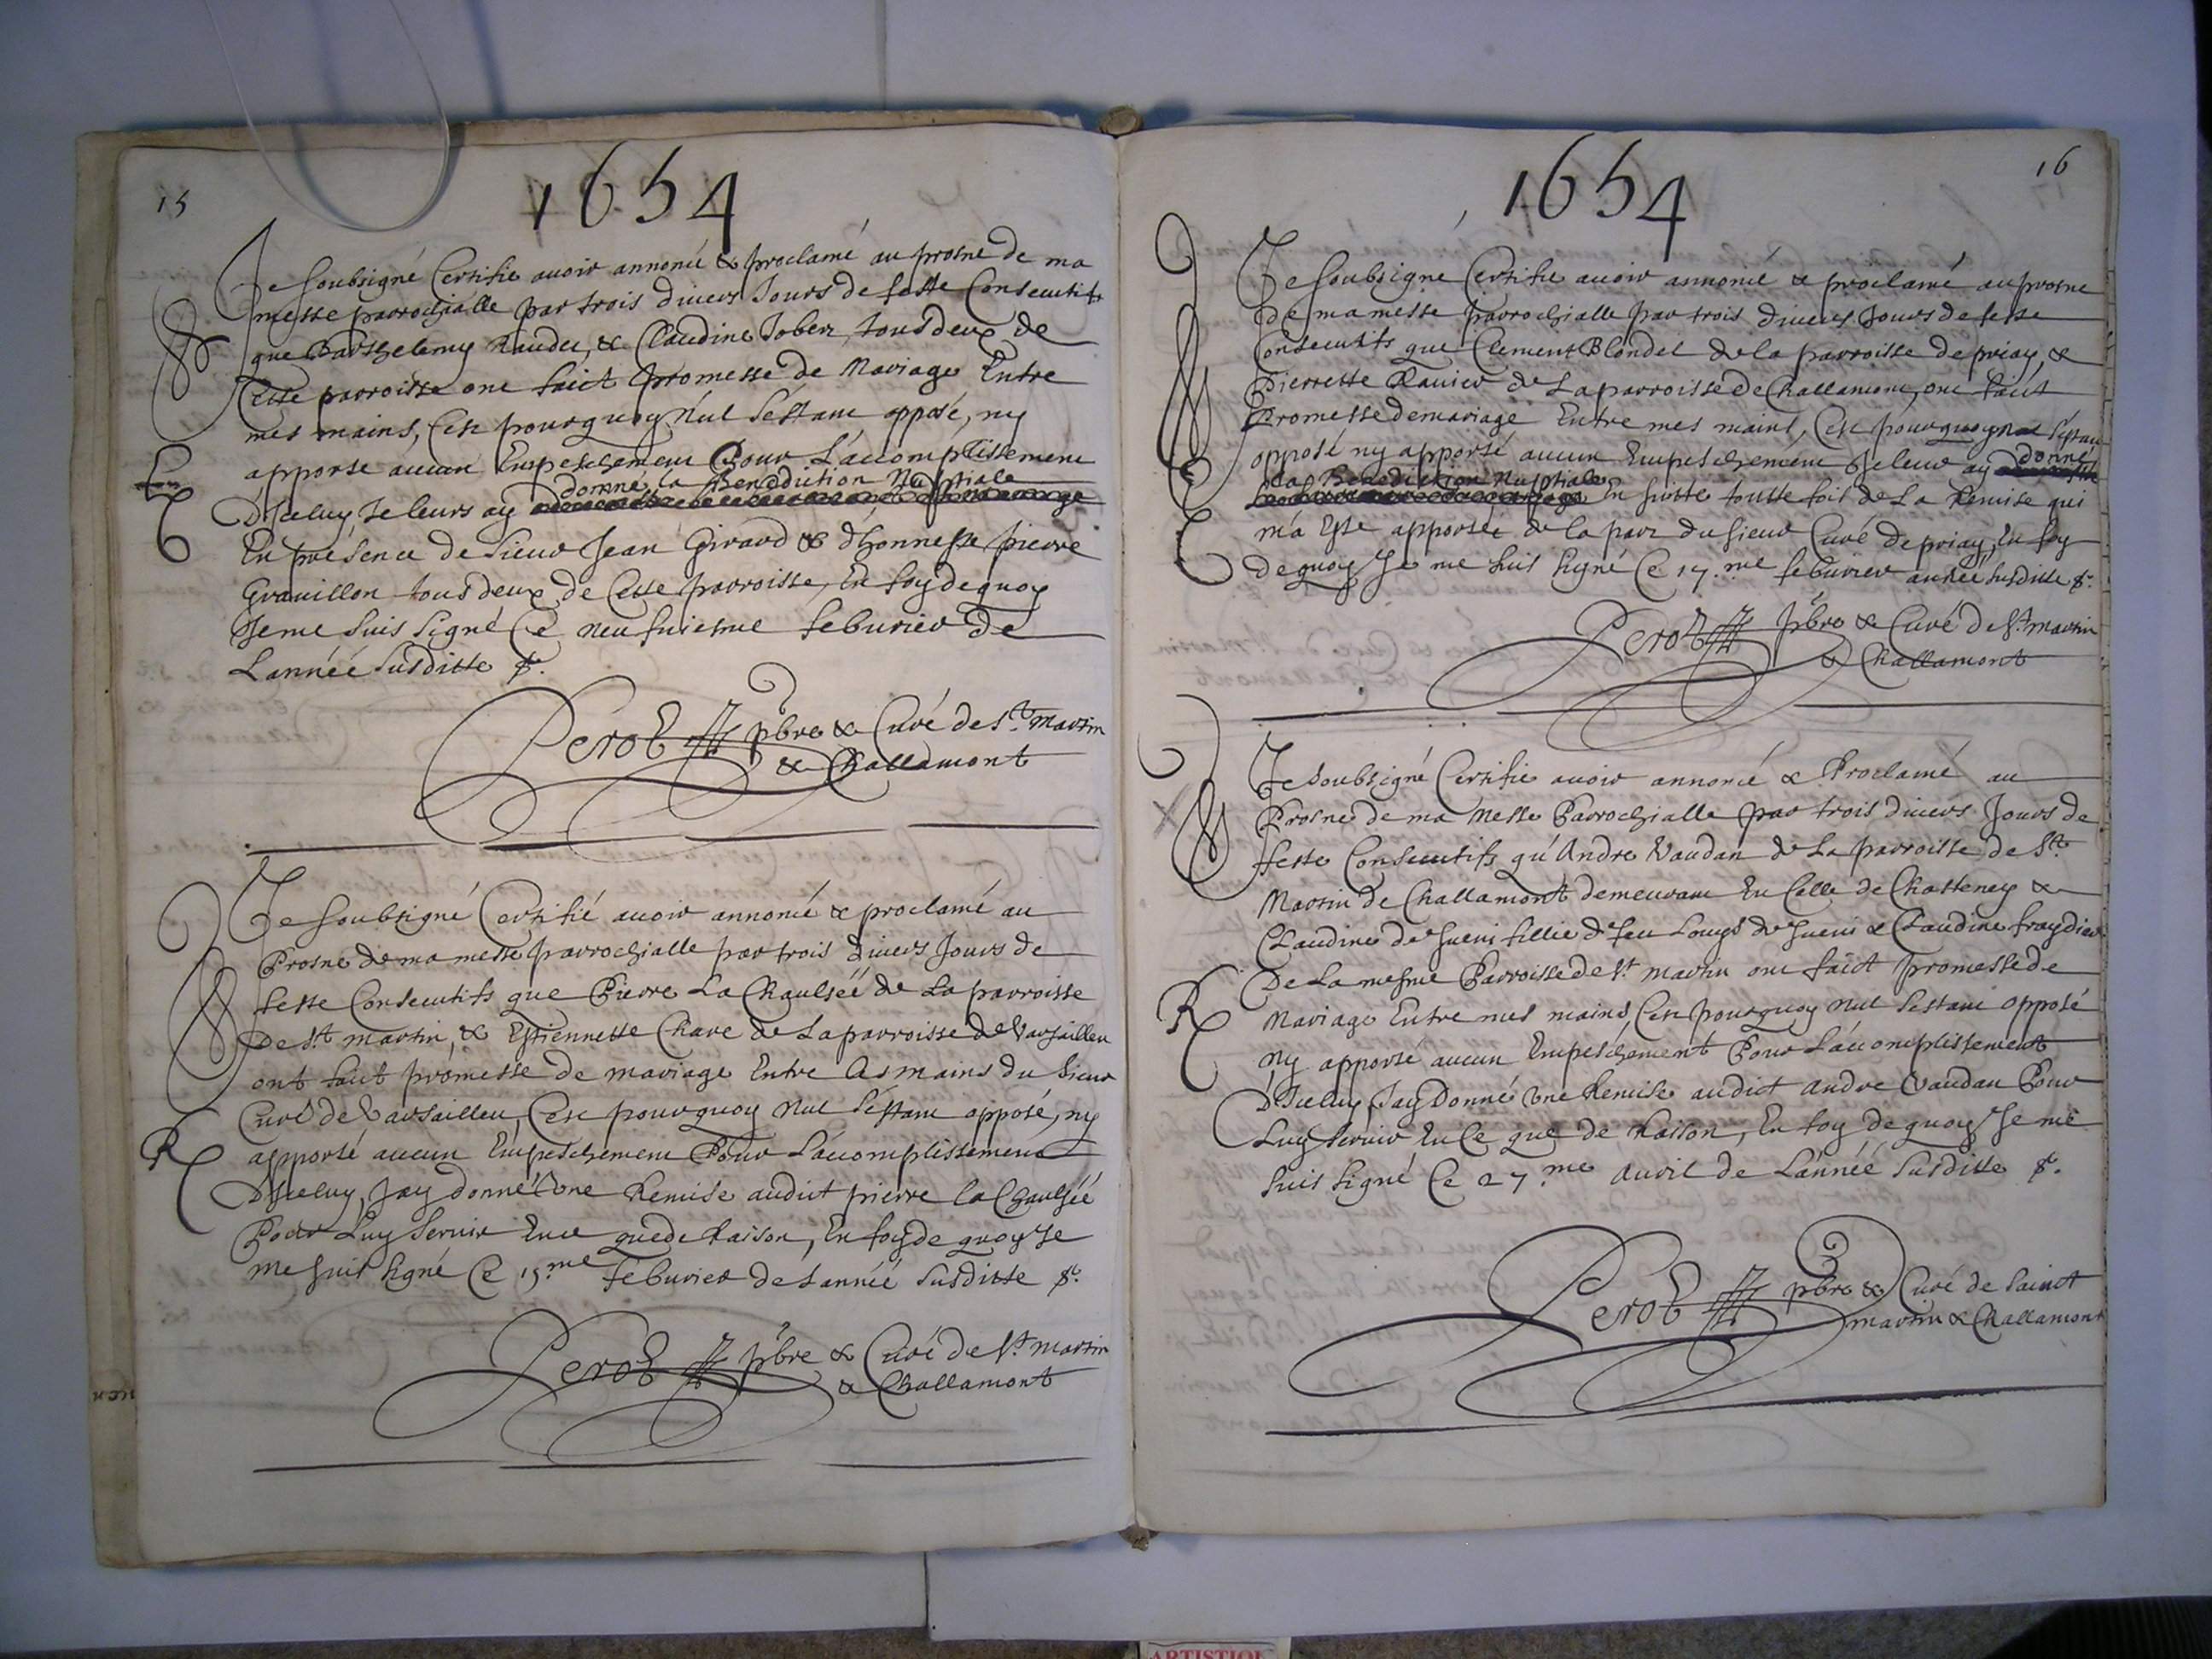 15
1654
Je soubsigné Certifie avoir annoncé & proclamé au prosne de ma
messe parrochialle par trois divers Jours de feste Consecutifs
que Barthelemy & Claudine Jober, tous deux de
Cette parroisse ont faict promesse de Mariage Entre
mes mains, Cest pourquoy Nul Sestant opposé, ny
apporté aucun Empeschement Pour L'accomplissement
donné la Benediction Nuptiale
D'Iceluy, Je leurs ay
En presence de Sieur Jean Girard & d'honneste pierre
Gravillon tous deux de Cette parroisse, En foy de quoy
Je me suis signé Ce neufviesme feburier de
Lannéé Susditte &c.
Perot pbre & Curé de St. Martin
& Challamont
Je soubsigné Certifié avoir annoncé & proclamé au
Prosne de ma messe parrochialle par trois divers Jours de
feste Consecutifs que Pierre La Chaulséé de La parroisse
De St martin, & Estiennette Chave de La parroisse de Varsailleu
ont faict promesse de mariage Entre les mains du Sieur
Curé de Varsailleu, Cest pourquoy Nul Sestant opposé, ny
R apporté aucun Empeschement Pour L'accomplissement
D'Iceluy, Jay donné Une Remise audict pierre la Chaulséé
Pour Luy Servir En ce que de Raison, En foy de quoy Je
me suis signé Ce 15.me feburier de Lannéé Susditte &c.
Perot pbre & Curé de St. martin
& Challamont
16
1654
Je soubsigné Certifie avoir annoncé & proclamé au prosne
de ma messe parrochialle par trois divers Jours de feste
Consecutifs que Clement Blondel de la parroisse de priay, &
Pierrette Ravier de La parroisse de Challamont, ont faict
Promesse de mariage Entre mes mains, Cest pourquoy nul Sestant
opposé ny apporté aucun Empeschement Je leur ay donné
la Benediction Nuptiale
En suitte toutte fois de La Remise qui
m'a Esté apportéé de la part du Sieur Curé de priay, En foy
de quoy Je me suis signé Ce 17.me feburier annéé susditte &c.
Perot pbre & Curé de St. martin
& Challamont
Je soubsigné Certifie avoir annoncé & Proclamé au
Prosne de ma Messe Parrochialle par trois divers Jours de
feste Consecutifs qu'Andre Vaudan de La parroisse de St.
Martin de Challamont demeurant En Celle de Chasteney &
Claudine de fillie de feu Louys de & Claudine fraydier
De La mesme Parroisse de St. martin ont faict promesse de
R Mariage Entre mes mains, Cest pourquoy Nul Sestant opposé
Ny apporté aucun Empeschement Pour L'accomplissement
D'Iceluy Jay Donné Une Remise audict Andre Vaudan Pour
Luy Servir En Ce que de Raison, En foy de quoy Je me
Suis signé Ce 27.me Avril de Lannéé Susditte &c.
Perot pbre & Curé de Sainct
martin & Challamont
ARTISTIQUE